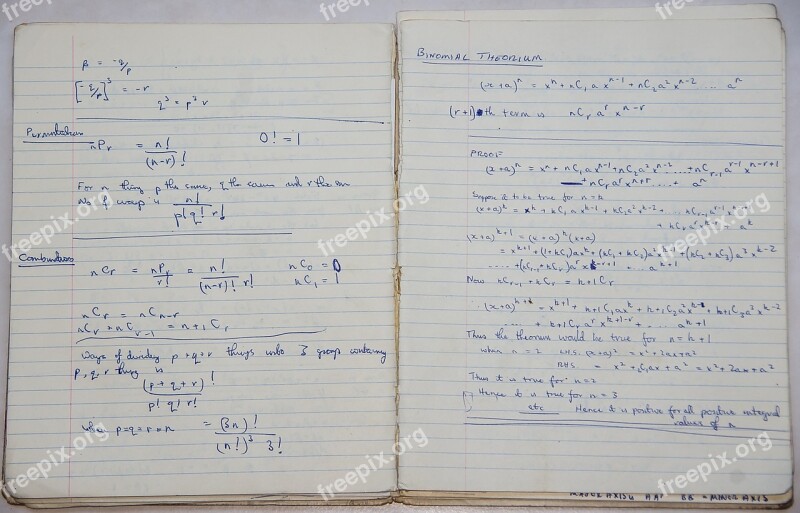 β = -q/p
[-q/p]^3 = -r
q^3 = p^3 r
Permutation
nPr = n!/(n-r)!   0! = 1
For n thing p the same, q the same and r the
No of ways is n!/p!q!r!
Combinations
nCr = nPr/r! = n!/(n-r)! r!   nC0 = 0
nC1 = 1
nCr = nCn-r
nCr + nCr-1 = n+1Cr
Ways of dividing p+q+r things into 3 groups containing
p, q, r thing is
(p+q+r)!/p! q! r!
when p=q=r=n = (3n)!/(n!)^3 3!
BINOMIAL THEORIUM
(x+a)^n = x^n + nC1 a x^n-1 + nC2 a^2 x^n-2 ... a^n
(r+1)th term is nCr a^r x^n-r
PROOF
(x+a)^n = x^n + nC1 a x^n-1 + nC2 a^2 x^n-2 ..... + nCr-1 a^r-1 x^n-r+1
+ nCr a^r x^n-r .... + a^n
Suppose to be true for n=k
(x+a)^k = x^k + kC1 a x^k-1 + kC2 a^2 x^k-2 + ... kCr-1 a^r-1
+ kCr a^r ... a^k
(x+a)^k+1 = (x+a)^k (x+a)
= x^k+1 + (1+kC1) a x^k + (kC1+kC2) a^2 x^k-1 + (kC2+kC3) a^3 x^k-2
..... + (kCr-1+kCr) a^r x^k-r+1 + ... a^k+1
Now kCr-1 + kCr = k+1Cr
(x+a)^k+1 = x^k+1 + k+1C1 a x^k + k+1C2 a^2 x^k-1 + k+1C3 x^k-2
..... + k+1Cr a^r x^k+1-r + .... a^k+1
Thus the theorium would be true for n=k+1
when n=2 LHS (x+a)^2 = x^2+2ax+a^2
RHS = x^2 + 2C1 ax + a^2 = x^2+2ax+a^2
Thus it is true for n=2
Hence it is true for n=3
etc Hence it is positive for all positive integral
values of n
MAJOR AXIS AA' BB' = MINOR AXIS
freepik.org